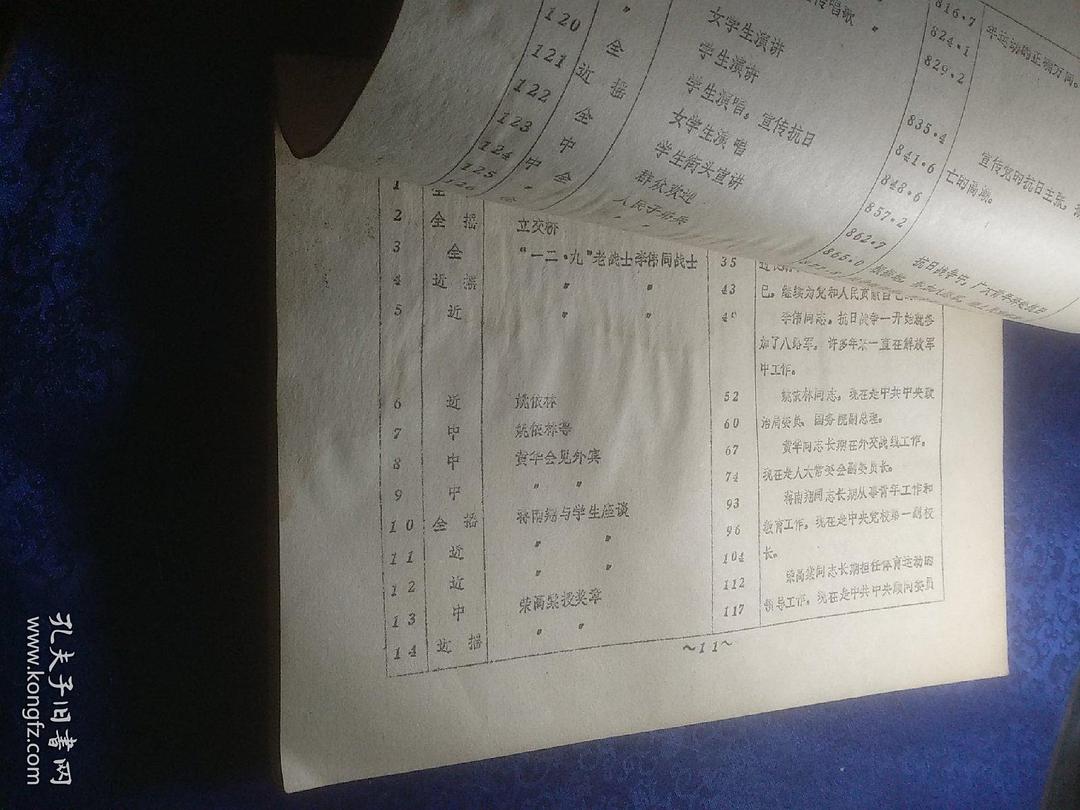 120 〃 816·7 年运动的正确方向。
121 全 女学生演讲 〃 824·1
122 近 摇 学生演讲 829·2
123 全 学生演唱，宣传抗日
124 中 女学生演唱 835·4
125 中 全 学生街头宣讲 841·6 宣传党的抗日主张，
群众欢迎 848·6 亡的高潮。
857·2
862·7 抗日战争中，
866·0
1 全
2 全 摇 立交桥
3 全 “一二·九”老战士李伟同战士 35
4 近 摇 〃 〃 43 已，继续为党和人民贡献自己
5 近 〃 〃 李伟同志，抗日战争一开始就参
加了八路军，许多年来一直在解放军
中工作。
6 近 姚依林 52 姚依林同志，现在是中共中央政
7 中 姚依林等 60 治局委员、国务院副总理。
8 中 黄华会见外宾 67 黄华同志长期在外交战线工作，
9 中 〃 〃 74 现在是人大常委会副委员长。
10 全 摇 蒋南翔与学生座谈 93 蒋南翔同志长期从事青年工作和
11 近 〃 〃 96 教育工作，现在是中央党校第一副校
12 近 〃 〃 104 长。
13 中 荣高棠授奖章 112 荣高棠同志长期担任体育运动的
14 近 摇 〃 〃 117 领导工作，现在是中共中央顾问委员
～11～
孔夫子旧书网
www.kongfz.com